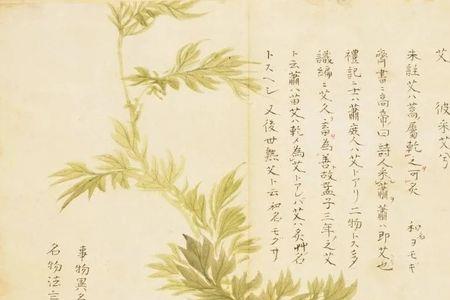 艾 彼采艾兮
朱註艾ハ蒿屬乾之可灸 和名ヨモギ
齊書ニ高帝曰詩人采蕭蕭ハ即艾也
禮記ニ士ハ蕭庶人ハ艾トアリ二物トス
識編ニ艾久畜為善故孟子三年之艾
ト云蕭ハ苗艾ハ乾為艾トアレバ艾ハ灸名
トスヘシ 又後世熟艾ト云和名モグサ
事物異名
名物法言